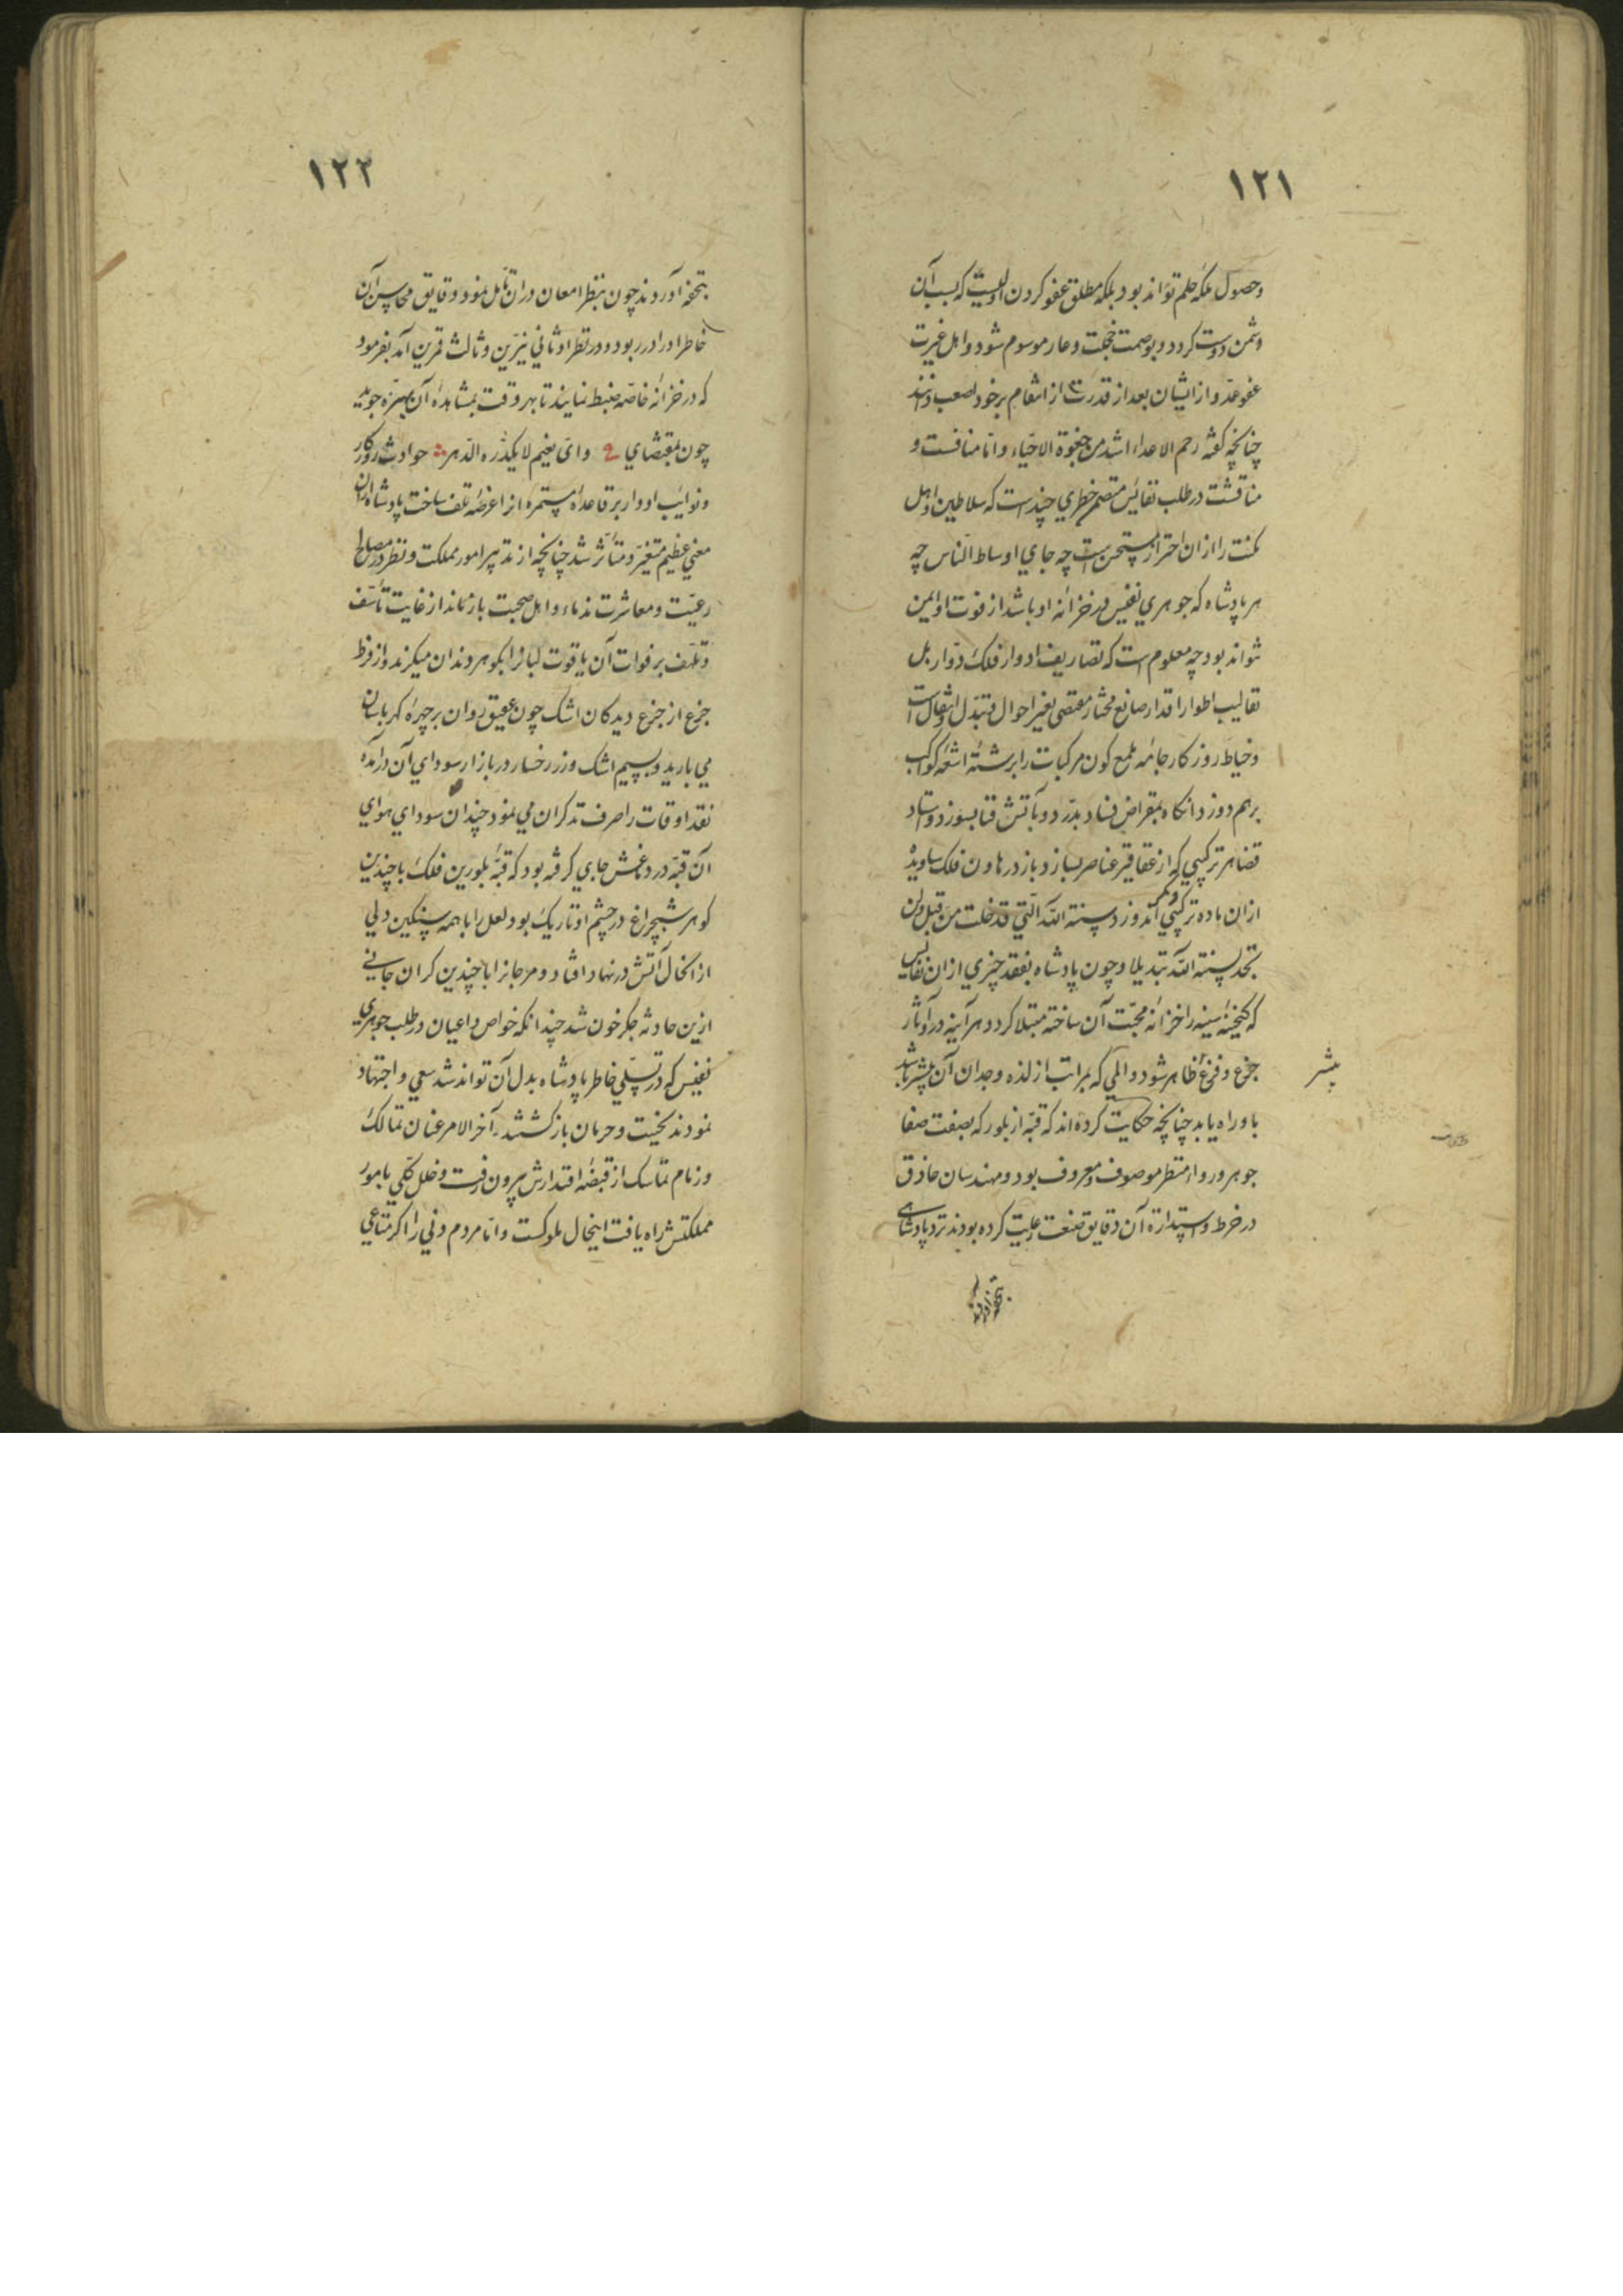 ١٢١
وحصول ملکه حلم تواند بود بلکه مطلق عفو کردن اولیست که بسبب آن
دشمن دوست کردد و بوصمت خجلت و عار موسوم شود و اهل غیرت
عفو عدو از ایشان بعد از قدرت از انتقام بر خود اصعب دانند
چنانچه کفته رحم الاعداء اشد من جفوة الاحباء و اما منافست و
مناقشت در طلب نفائس متضمن خطری چند است که سلاطین و اهل
مکنت را ازان احتراز مستحسن است چه جای اوساط الناس چه
هر پادشاه که جوهری نفیس در خزانه او باشد از فوت او ایمن
نتواند بود چه معلوم است که تصاریف ادوار فلک دوار بل
تقالیب اطوار اقدار صانع مختار مقتضی تغیر احوال و تبدل و انتقال است
و خیاط روزکار جامه ملمع کون مرکبات را برشته اشعه کواکب
برهم دوزد انکاه بمقراض فساد بدرد و بآتش فنا بسوزد و استاد
قضا هر ترکیبی که از عقاقیر عناصر بسازد باز در هاون فلک ساویده
ازان ماده ترکیبی دکر اندوزد سنة الله التی قد خلت من قبل ولن
تجد لسنة الله تبدیلا و چون پادشاه بفقد چیزی ازان نفایس
که کنجینه سینه را خزانه محبت آن ساخته مبتلا کردد هر آینه در او آثار
جزع و فزع ظاهر شود و المی که بمراتب از لذه وجدان آن بیشتر باشد
بیشتر
باو راه یابد چنانچه حکایت کرده اند که قبه از بلور که بصفت صفا
جوهر و رواء منظر موصوف و معروف بود و مهندسان حاذق
در خرط و استدارة آن دقایق صنعت رعایت کرده بودند نزد پادشاهی
بتحفه آوردند
١٢٢
بتحفه آوردند چون بنظر امعان دران تامل نمود دقایق محاسن آن
خاطر او را در ربود و در نظر او ثانی نیرین و ثالث قمرین آمد بفرمود
که در خزانه خاصه ضبط نمایند تا بهر وقت بمشاهده آن بهره جوید
چون بمقتضای ع وای نعیم لا یکدره الدهر حوادث روزکار
و نوایب ادوار بر قاعده مستمره انرا عرضه تلف ساخت پادشاه ازان
معنی عظیم متغیر و متأثر شد چنانچه از تدبیر امور مملکت و نظر در مصالح
رعیت و معاشرت ندماء و اهل صحبت باز ماند از غایت تأسف
و تلهف بر فوات آن یاقوت لبانرا بکوهر دندان میکزید و از فرط
جزع از جزع دیدکان اشک چون عقیق روان بر چهره کهربا سان
می بارید و بسیم اشک و زر رخسار در بازار سودای آن درآمده
نقد اوقات را صرف تذکران می نمود چندان سودای هوای
آن قبه در دماغش جای کرفته بود که قبه بلورین فلک با چندین
کوهر شبچراغ در چشم او تاریک بود لعل را با همه سنکین دلی
از آنحال آتش در نهاد افتاد و مرجانرا با چندین کران جانی
ازین حادثه جکر خون شد چندانکه خواص و اعیان در طلب جوهری
نفیس که در تسلی خاطر پادشاه بدل آن تواند شد سعی و اجتهاد
نمودند بخیبت و حرمان باز کشتند آخر الامر عنان تمالک
و زمام تماسک از قبضه اقتدارش بیرون رفت و خلل کلی بامور
مملکتش راه یافت اینحال ملوکست و اما مردم دنی را اکر متاعی